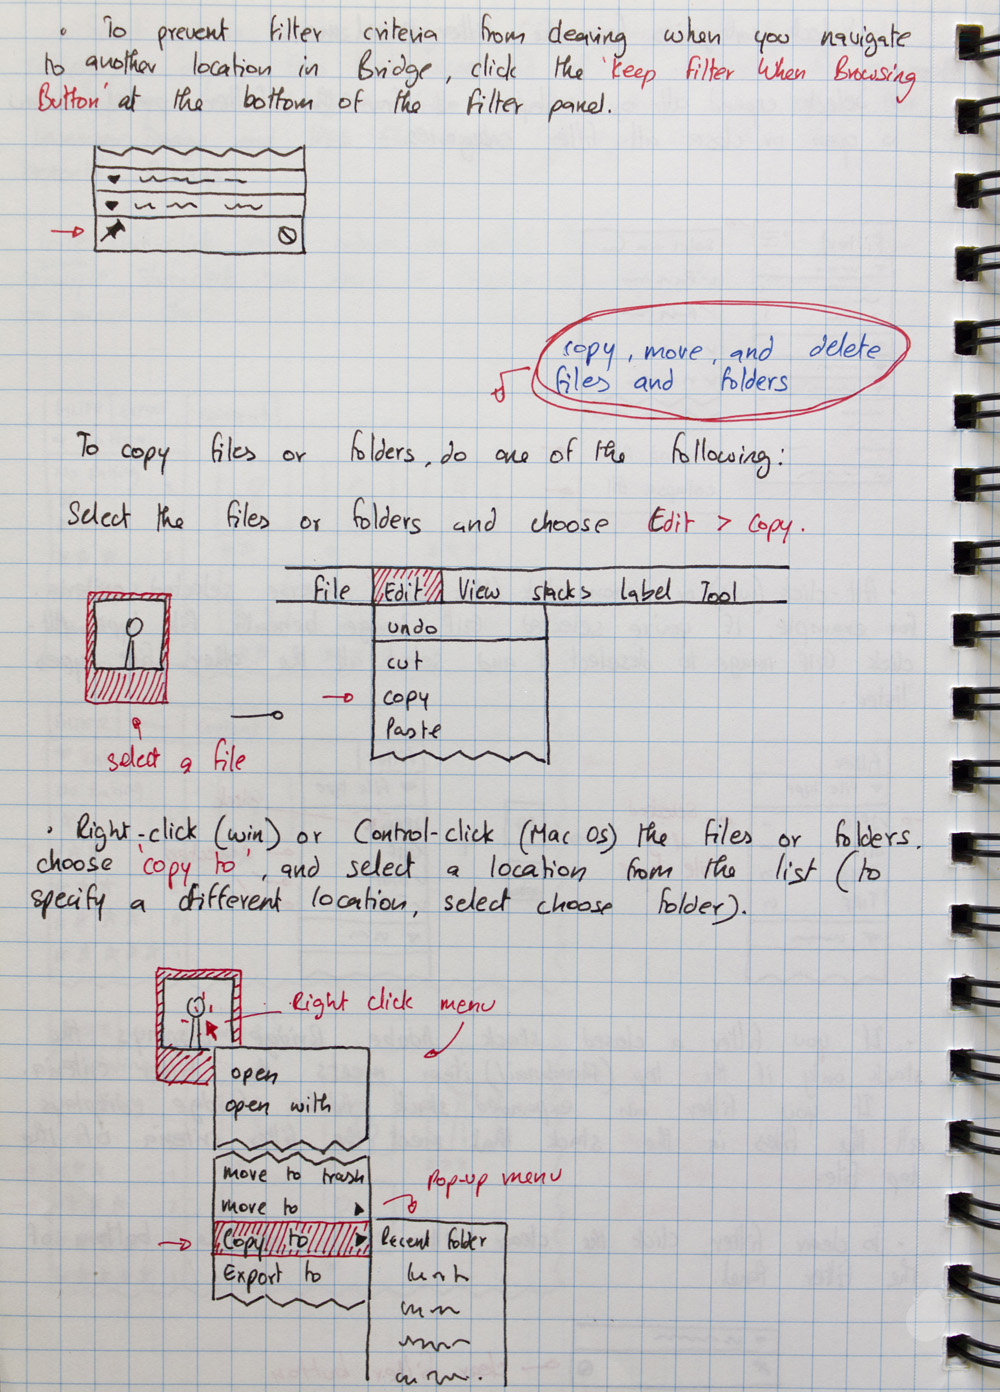 . To prevent filter criteria from clearing when you navigate
to another location in Bridge, click the 'Keep Filter When Browsing
Button' at the bottom of the filter panel.
copy, move, and delete
files and folders
To copy files or folders, do one of the following:
Select the files or folders and choose Edit > Copy.
File Edit View stacks Label Tool
undo
cut
copy
Paste
select a file
. Right-click (win) or Control-click (Mac OS) the files or folders.
choose 'copy to', and select a location from the list (to
specify a different location, select choose folder).
Right click menu
open
open with
move to trash
Pop-up menu
move to
Copy to
Recent folder
Export to